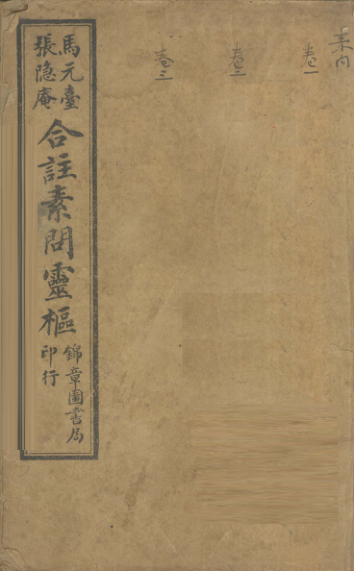 卷一
卷二
卷三
馬元臺
張隐庵
合註素問靈樞
錦章圖書局
印行